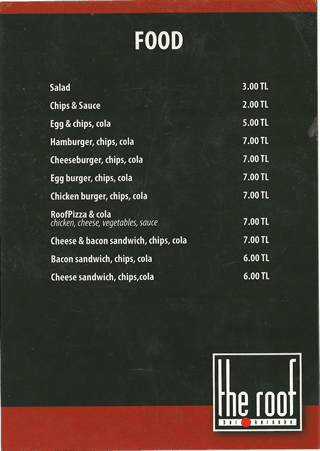 FOOD
Salad 3.00 TL
Chips & Sauce 2.00 TL
Egg & chips, cola 5.00 TL
Hamburger, chips, cola 7.00 TL
Cheeseburger, chips, cola 7.00 TL
Egg burger, chips, cola 7.00 TL
Chicken burger, chips, cola 7.00 TL
RoofPizza & cola
chicken, cheese, vegetables, sauce 7.00 TL
Cheese & bacon sandwich, chips, cola 7.00 TL
Bacon sandwich, chips, cola 6.00 TL
Cheese sandwich, chips,cola 6.00 TL
the roof
bar karaoke